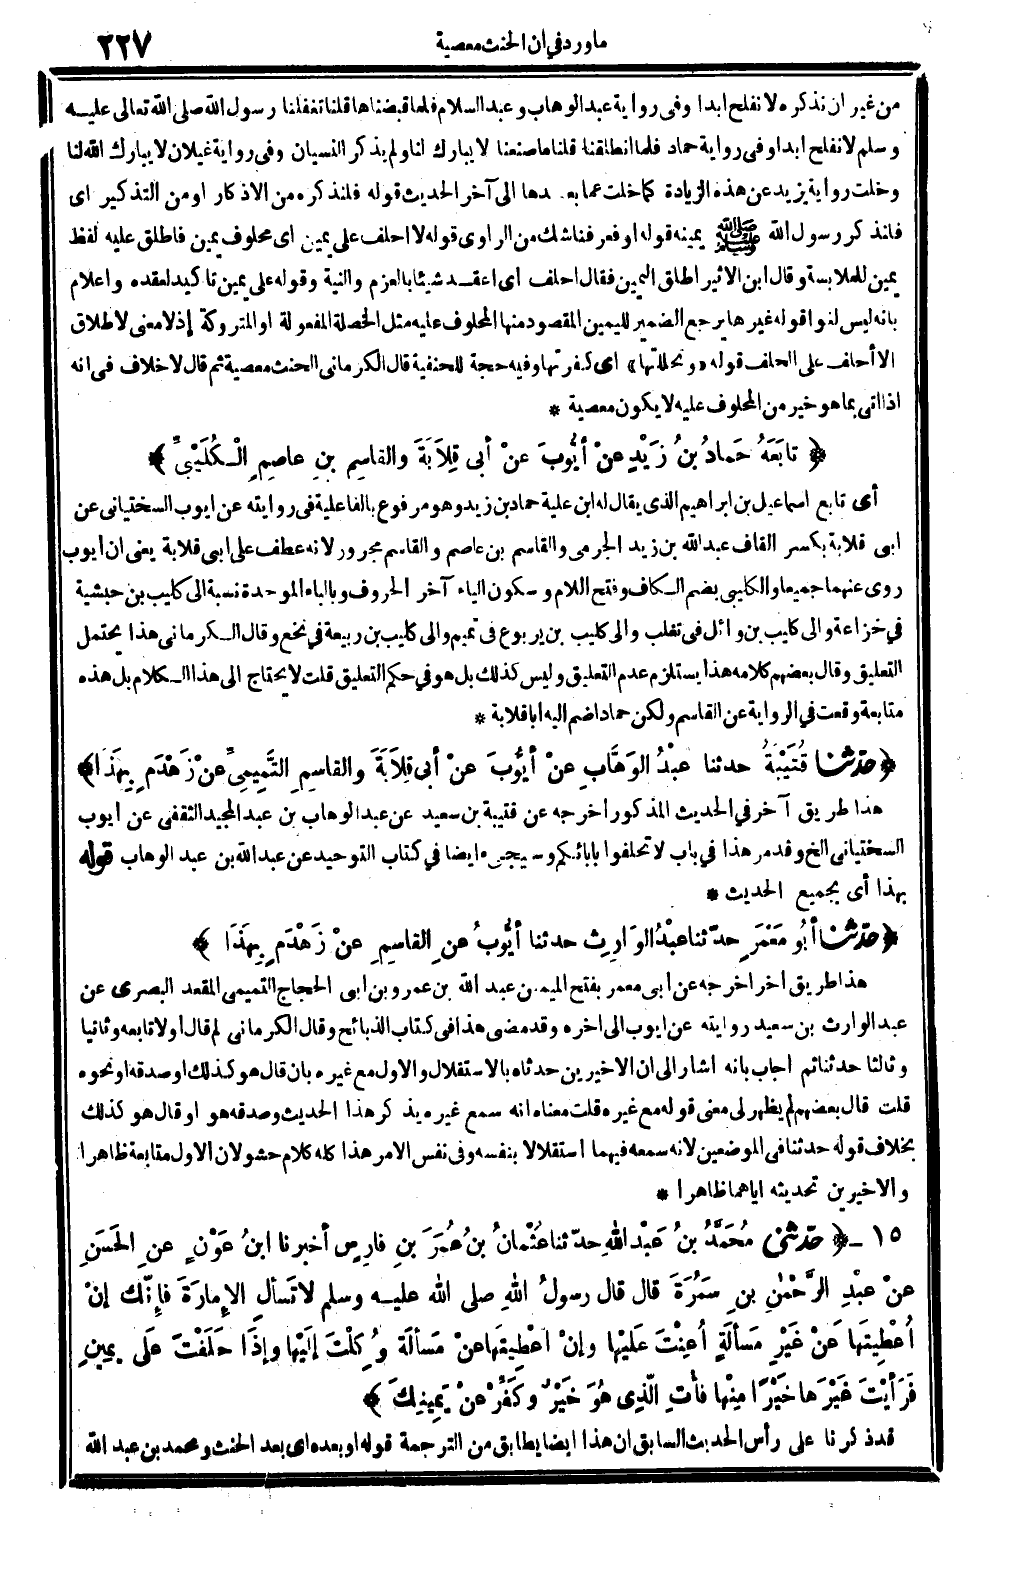 ما ورد في ان الحنث معصية ٢٢٧
من غير ان نذكره لا نفلح ابدا وفى رواية عبد الوهاب وعبد السلام فلما قبضناها قلنا تغفلنا رسول الله صلى الله تعالى عليه
وسلم لا نفلح ابدا وفى رواية حماد فلما انطلقنا قلنا ما صنعنا لا يبارك لنا ولم يذكر النسيان وفى رواية غيلان لا يبارك الله لنا
وخلت رواية يزيد عن هذه الزيادة كما خلت عما بعدها الى آخر الحديث قوله فلنذكره من الاذكار او من التذكير اى
فلنذكر رسول الله ﷺ يمينه قوله او فعرفنا شك من الراوى قوله لا احلف على يمين اى محلوف يمين فاطلق عليه لفظ
يمين للملابسة وقال ابن الاثير اطلق اليمين فقال احلف اى اعقد شيئا بالعزم والنية وقوله على يمين تاكيد لعقده واعلام
بانه ليس لنوا قوله غيرها يرجع الضمير لليمين المقصود منها المحلوف عليه مثل الخصلة المفعولة او المتروكة إذ لا معنى لاطلاق
الا أحلف على الحلف قوله «وتحللتها» اى كفرتها وفيه حجة للحنفية قال الكرمانى الحنث معصية ثم قال لا خلاف فى انه
اذا اتى بما هو خير من المحلوف عليه لا يكون معصية *
﴿ تابَعَهُ حَمادُ بنُ زَيْدٍ عنْ أيُّوبَ عنْ أبى قِلاَبَةَ والقاسِمِ بنِ عاصِمٍ الْكُلَيْبِىِّ ﴾
أى تابع اسماعيل بن ابراهيم الذى يقال له ابن علية حماد بن زيد وهو مرفوع بالفاعلية فى روايته عن ايوب السختيانى عن
ابى قلابة بكسر القاف عبد الله بن زيد الجرمى والقاسم بن عاصم والقاسم مجرور لانه عطف على ابى قلابة يعنى ان ايوب
روى عنهما جميعا والكليبى بضم الكاف وفتح اللام وسكون الياء آخر الحروف وبالباء الموحدة نسبة الى كليب بن حبشية
في خزاعة والى كليب بن وائل فى تغلب والى كليب بن يربوع فى تميم والى كليب بن ربيعة في نخع وقال الكرمانى هذا يحتمل
التعليق وقال بعضهم كلامه هذا يستلزم عدم التعليق وليس كذلك بل هو في حكم التعليق قلت لا يحتاج الى هذا الكلام بل هذه
متابعة وقعت في الرواية عن القاسم ولكن حمادا ضم اليه ابا قلابة *
﴿ حدّثنا قُتَيْبَةُ حدثنا عبْدُ الوَهَّابِ عنْ أيُّوبَ عنْ أبى قِلاَبَةَ والقاسِمِ التَّمِيمِىِّ عنْ زَهْدَمٍ بِهَذَا ﴾
هذا طريق آخر في الحديث المذكور اخرجه عن قتيبة بن سعيد عن عبد الوهاب بن عبد المجيد الثقفى عن ايوب
السختيانى الخ وقد مر هذا في باب لا تحلفوا بابائكم وسيجىء ايضا في كتاب التوحيد عن عبد الله بن عبد الوهاب قوله
بهذا أى بجميع الحديث *
﴿ حدّثنا أبُو مَعْمَرٍ حدّثنا عبْدُ الوَارِثِ حدثنا أيُّوبُ عنِ القاسِمِ عنْ زَهْدَمٍ بِهَذَا ﴾
هذا طريق اخر اخرجه عن ابى معمر بفتح الميمين عبد الله بن عمرو بن ابى الحجاج التميمى المقعد البصرى عن
عبد الوارث بن سعيد روايته عن ايوب الى اخره وقد مضى هذا فى كتاب الذبائح وقال الكرمانى لم قال أولا تابعه وثانيا
وثالثا حدثنا ثم اجاب بانه اشار الى ان الاخيرين حدثاه بالاستقلال والاول مع غيره بان قال هو كذلك او صدقه او نحوه
قلت قال بعضهم لم يظهر لى معنى قوله مع غيره قلت معناه انه سمع غيره يذكر هذا الحديث وصدقه هو او قال هو كذلك
بخلاف قوله حدثنا فى الموضعين لانه سمعه فيهما استقلالا بنفسه وفى نفس الامر هذا كله كلام حشو لان الاول متابعة ظاهرا
والاخيرين تحديثه اياهما ظاهرا *
١٥ - ﴿ حدّثنى مُحَمَّدُ بنُ عَبْدِ اللهِ حدّثنا عُثْمانُ بنُ عُمَرَ بنِ فارِسٍ أخبرنا ابنُ عَوْنٍ عنِ الحَسَنِ
عنْ عبْدِ الرَّحْمٰنِ بنِ سَمُرَةَ قال قال رسولُ اللهِ صلى الله عليه وسلم لا تَسألِ الإمارَةَ فإنَّكَ إنْ
أُعْطِيتَها عَنْ غَيْرِ مَسألَةٍ أُعِنْتَ عَلَيْها وإنْ أُعْطِيتَها عنْ مَسألَةٍ وُكِلْتَ إلَيْها وإذَا حَلَفْتَ عَلَى يَمِينٍ
فَرَأيْتَ غَيْرَها خَيْرًا مِنْها فأْتِ الَّذِى هُوَ خَيْرٌ وكَفِّرْ عنْ يَمِينِكَ ﴾
قد ذكرنا على رأس الحديث السابق ان هذا ايضا يطابق من الترجمة قوله او بعده اى بعد الحنث ومحمد بن عبد الله